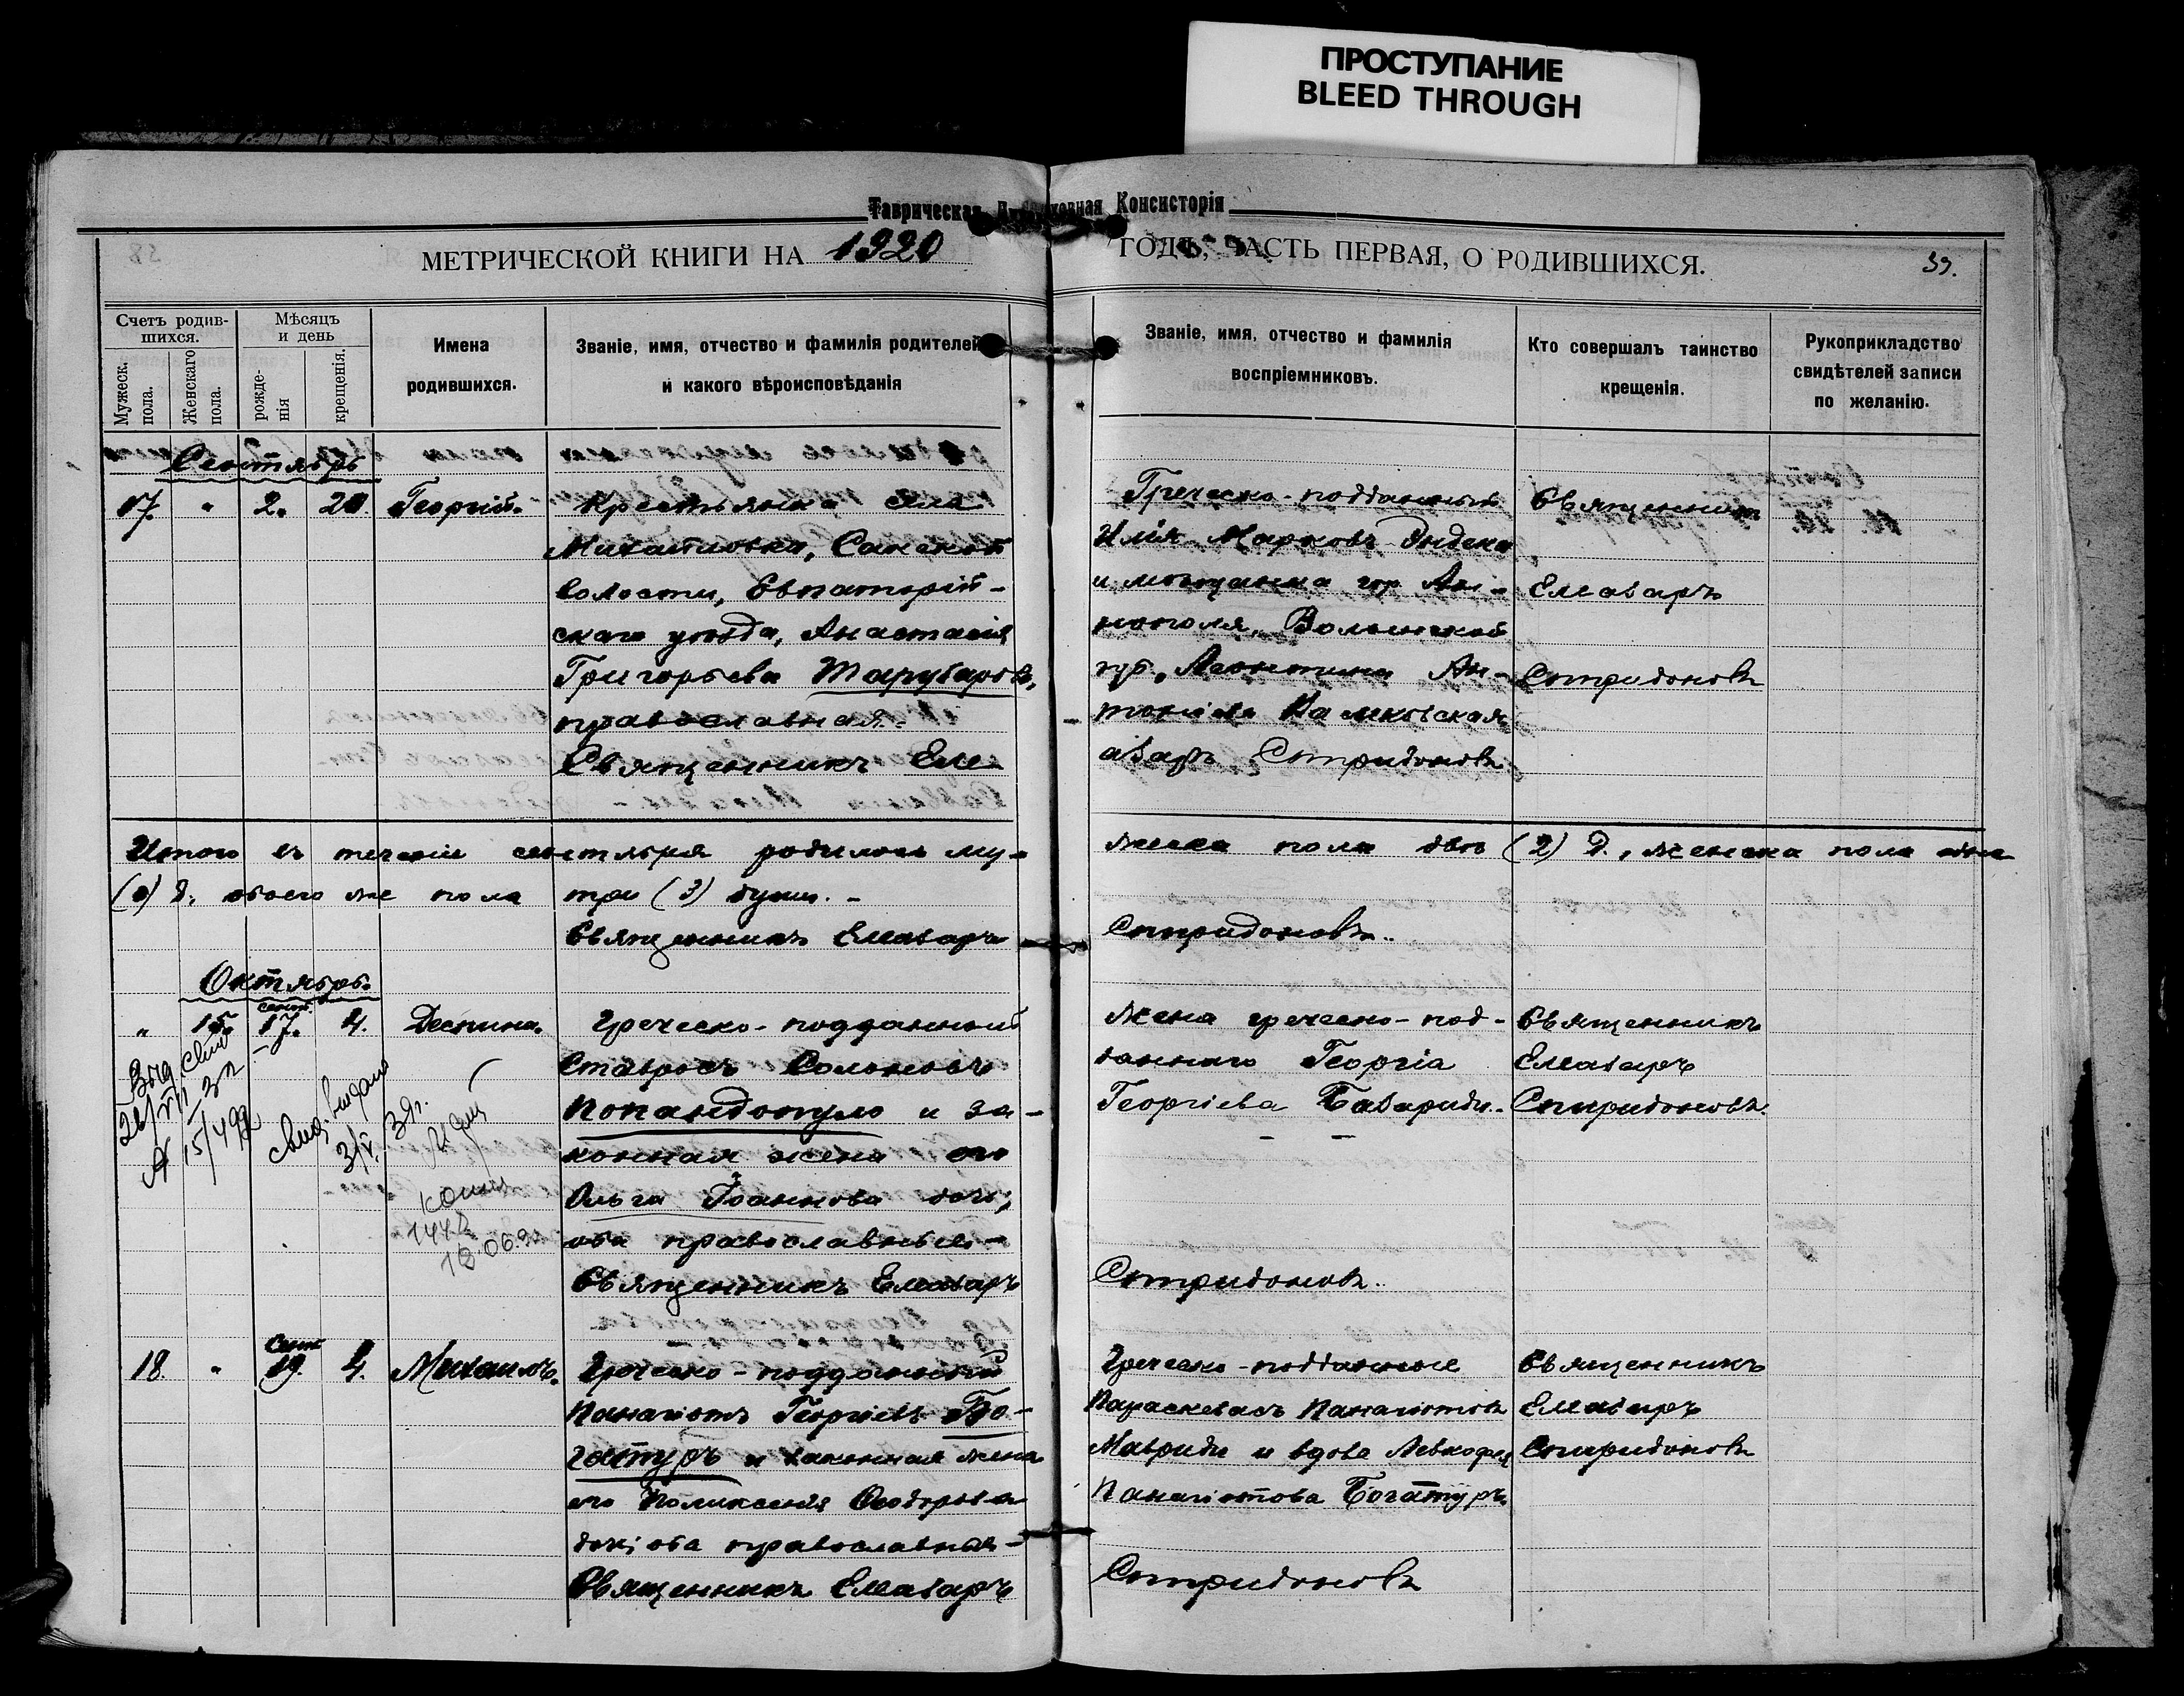 ПРОСТУПАНИЕ
BLEED THROUGH
Таврическая Духовная Консисторія
МЕТРИЧЕСКОЙ КНИГИ НА 1920 ГОДЪ, ЧАСТЬ ПЕРВАЯ, О РОДИВШИХСЯ.
39.
Счетъ родив-
шихся.
Мужеск. пола.
Женскаго пола.
Мѣсяцъ
и день
рожде-
нія
крещенія.
Имена
родившихся.
Званіе, имя, отчество и фамилія родителей
и какого вѣроисповѣданія
Званіе, имя, отчество и фамилія
воспріемниковъ.
Кто совершалъ таинство
крещенія.
Рукоприкладство
свидѣтелей записи
по желанію.
Сентябрь
17. " 2. 20. Георгій.
Крестьянка села
Михайловки, Сакской
волости, Евпаторій-
скаго уѣзда, Анастасія
Григорьева
православная.-
Священникъ Елe-
Греческо-подданный
Илія Марковъ
и мѣщанка гор. Ан-
нополя, Волынской
губ., Леонтина Ан-
тонова
азаръ Спиридоновъ.
Священникъ
Елеазаръ
Спиридоновъ
Итого въ теченіе сентября родилось му-
жеска пола двѣ (2) д., женска пола одна
(1) д. обоего же пола три (3) души. -
Священникъ Елеазаръ
Спиридоновъ.
Октябрь.
" 15. сент. 17. 4. Деспина.
Греческо-подданный
Ставросъ
Попандопуло и за-
конная жена его
Ольга Іоаннова дочь,
оба православные.-
Священникъ Елеазаръ
Жена греческо-под-
даннаго Георгія
Георгіева
Спиридоновъ.
Священникъ
Елеазаръ
Спиридоновъ.
выдано
копия
18.06.
18. " Сент. 19. 4. Михаилъ.
Греческо-подданный
Панагіотъ Георгіевъ Бо-
гатуръ и законная жена
его Поликсенія Феодорова
дочь, оба православные-
Священникъ Елеазаръ
Греческо-подданные
Параскевасъ Панагіотовъ
Мавриди и вдова
Панагіотова Богатуръ.
Спиридоновъ
Священникъ
Елеазаръ
Спиридоновъ